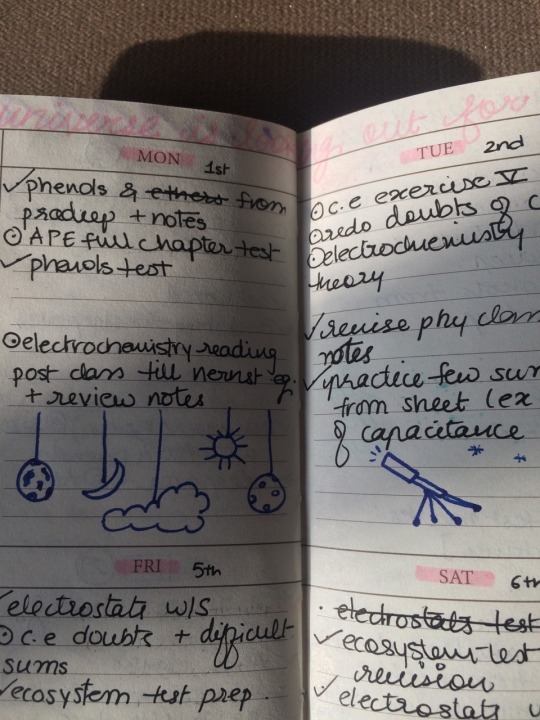 universe is looking out for
MON 1st
✓phenols & ethers from
pradeep + notes
⊙ APE full chapter test
✓phenols test
⊙electrochemistry reading
post class till nernst eq.
+ review notes
TUE 2nd
⊙c.e exercise V
⊙redo doubts of c
⊙electrochemistry
theory
✓revise phy class
notes
✓practice few sum
from sheet (ex
of capacitance
FRI 5th
✓electrostats w/s
⊙ c.e doubts + difficult
sums
✓ecosystem test prep.
SAT 6th
. electrostats test
✓ecosystem test
revision
✓electrostats w